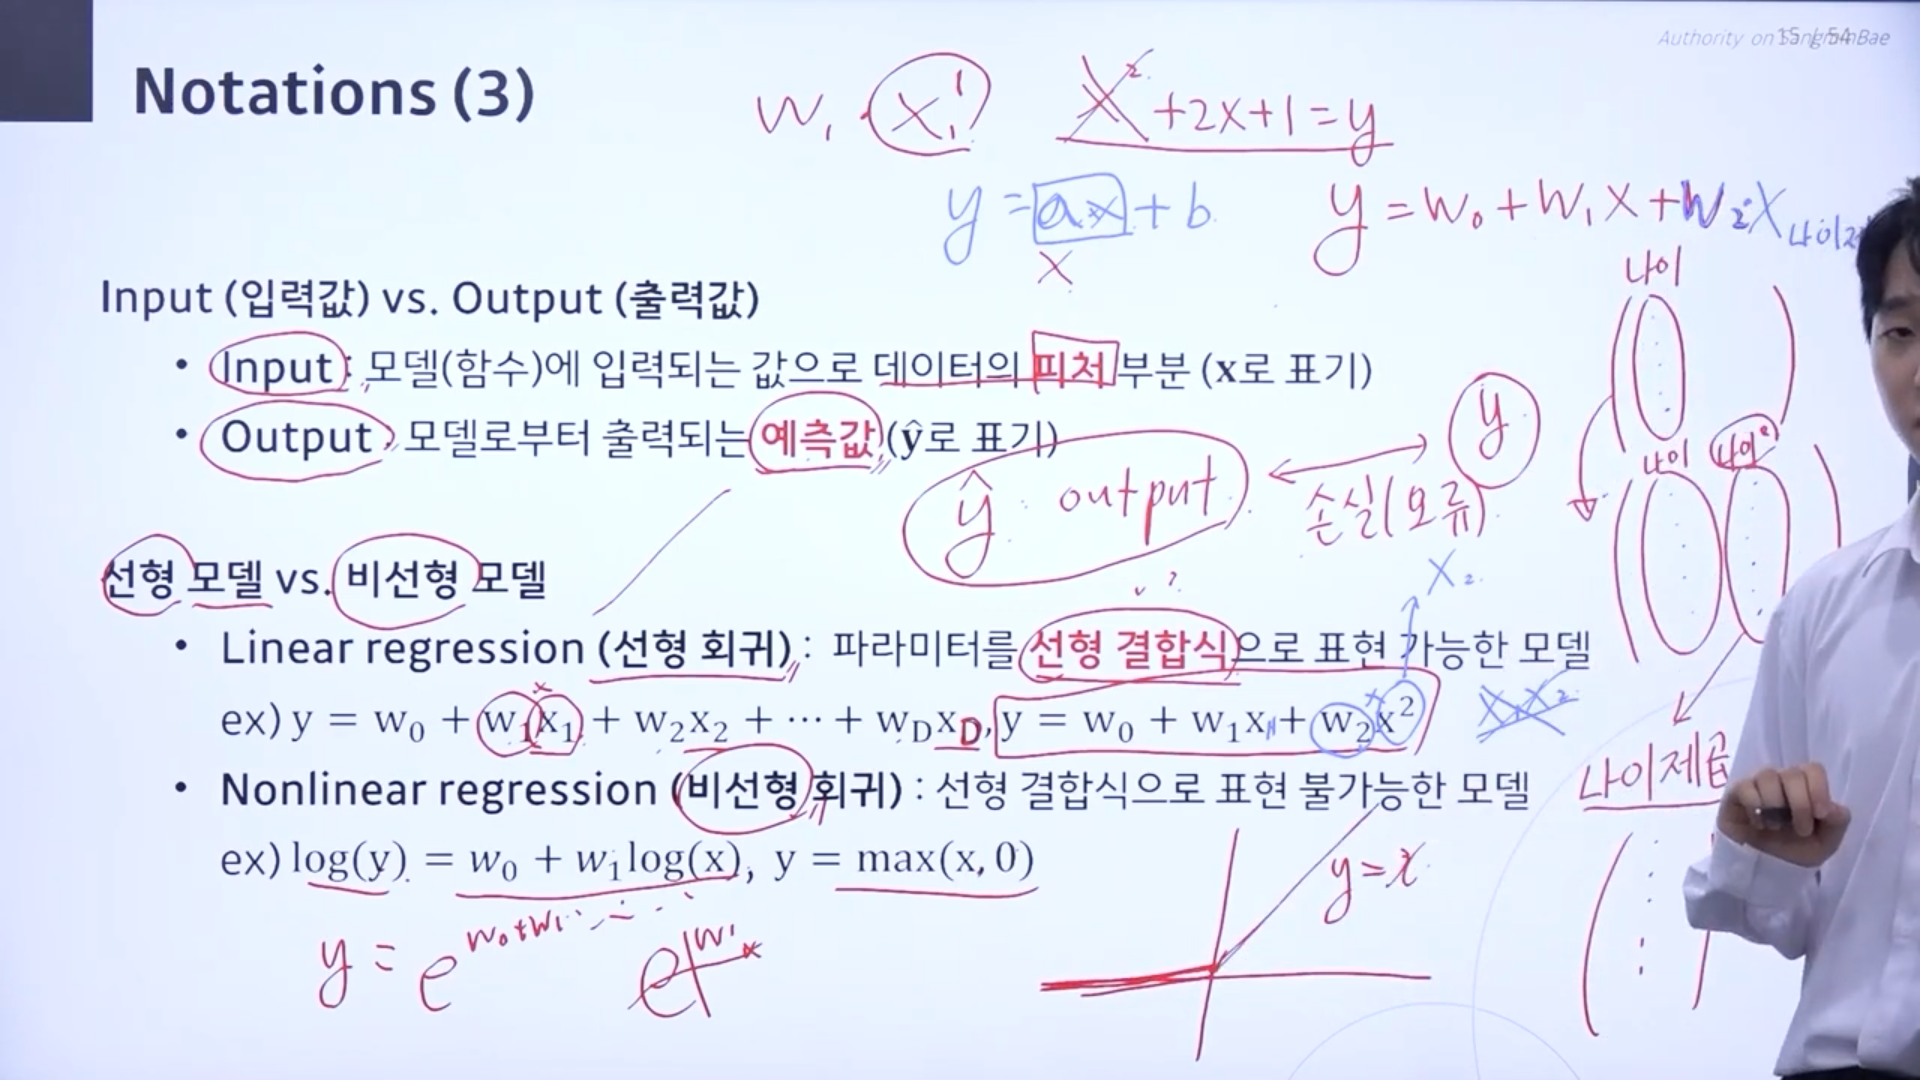 Authority on SangminBae
15 / 54
Notations (3)
w₁ · x₁¹
x² + 2x + 1 = y
y = ax + b
x
y = w₀ + w₁x + w₂x나이제
나이
Input (입력값) vs. Output (출력값)
• Input : 모델(함수)에 입력되는 값으로 데이터의 피처 부분 (x로 표기)
• Output : 모델로부터 출력되는 예측값 (ŷ로 표기)
y
나이 나이²
ŷ : output
손실(오류)
선형 모델 vs. 비선형 모델
x₂
• Linear regression (선형 회귀) : 파라미터를 선형 결합식으로 표현 가능한 모델
ex) y = w₀ + w₁x₁ + w₂x₂ + ⋯ + w_Dx_D, y = w₀ + w₁x + w₂x²
나이제곱
• Nonlinear regression (비선형 회귀) : 선형 결합식으로 표현 불가능한 모델
ex) log(y) = w₀ + w₁log(x), y = max(x, 0)
y = x
y = e^(w₀+w₁